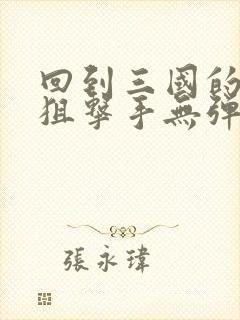 回到三國的
狙擊手無彈
張永瑋